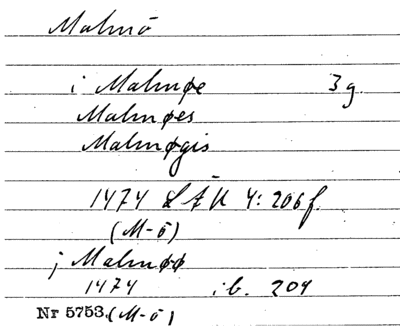 Malmö
i Malmøe 3 g.
Malmøes
Malmøgis
1474 LÄU 4: 206 f.
(M-ö)
j Malmøø
1474 ib. 204
Nr 5753. (M-ö)